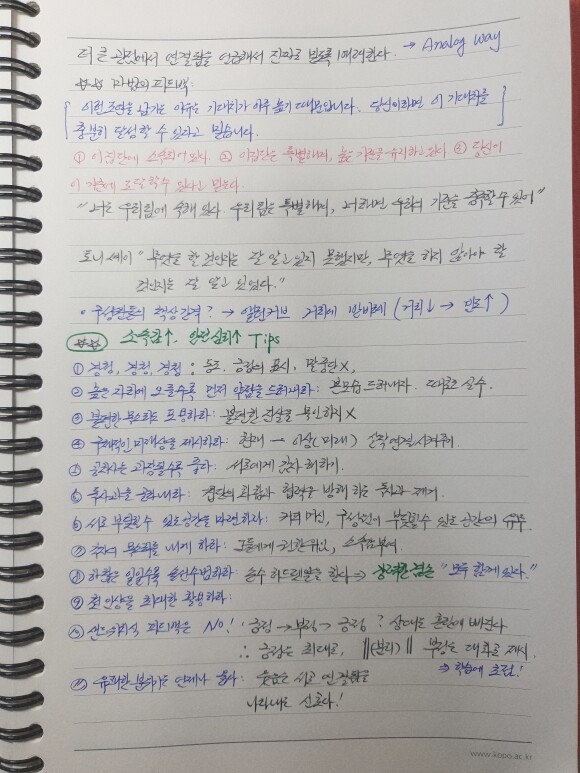 더 큰 관점에서 연결점을 언급해서 진짜로 믿도록 배려한다. → Analog way
☆☆ 마법의 피드백:
이런 조언을 남기는 이유는 기대치가 아주 높기 때문입니다. 당신이라면 이 기대치를
충분히 달성할 수 있다고 믿습니다.
① 이 집단에 소속되어 있다. ② 이 집단은 특별하며, 높은 기준을 유지하고 있다 ③ 당신이
이 기준에 도달할 수 있다고 믿는다.
"너는 우리팀에 속해 있다. 우리팀은 특별하며, 너라면 우리의 기준을 충족할 수 있어"
토니 셰이 " 무엇을 할 것인지는 잘 알고 있지 못했지만, 무엇을 하지 않아야 할
것인지는 잘 알고 있었다."
• 구성원들의 책상간격? → 앨런커브 거리에 반비례 (거리↓ → 빈도↑)
☆☆ 소속감↑, 안전심리↑ Tips
① 경청, 경청, 경청 : 동조, 긍정의 표시, 말중단 X,
② 높은 자리에 오를수록 먼저 약점을 드러내라: 본모습 드러내자. 때로는 실수.
③ 불편한 목소리도 포용하라: 불편한 진실을 불인하지 X
④ 구체적인 미래상을 제시하라: 현재 → 이상(미래) 신호
⑤ 감사는 과장될수록 좋다: 서로에게 감사 해하기.
⑥ 독사과를 솎아내라: 집단의 화합과 협력을 방해 하는 독사과 제거.
⑥ 서로 부딪힐 수 있는 공간을 마련하라: 커피 머신, 구성원이 부딪힐 수 있는 공간의 유무
⑦ 각자의 목소리를 내게 하라: 그들에게 권한위임, 소속감 부여.
⑧ 하찮은 일일수록 솔선수범하라: 손수 허드렛일을 한다 ⇒ 강력한 겸손 "모두 함께 있다."
⑨ 첫 인상을 최대한 활용하라:
⑩ 샌드위치식 피드백은 NO! 긍정 → 부정 → 긍정 ? 상대는 혼란에 빠진다
∴ 긍정은 최대로, ‖(분리)‖ 부정은 대화로 제시.
⇒ 학습에 초점!
⑪ 유쾌한 분위기는 언제나 옳다: 웃음은 서로 연결됨을
나타내는 신호다!
www.kopo.ac.kr